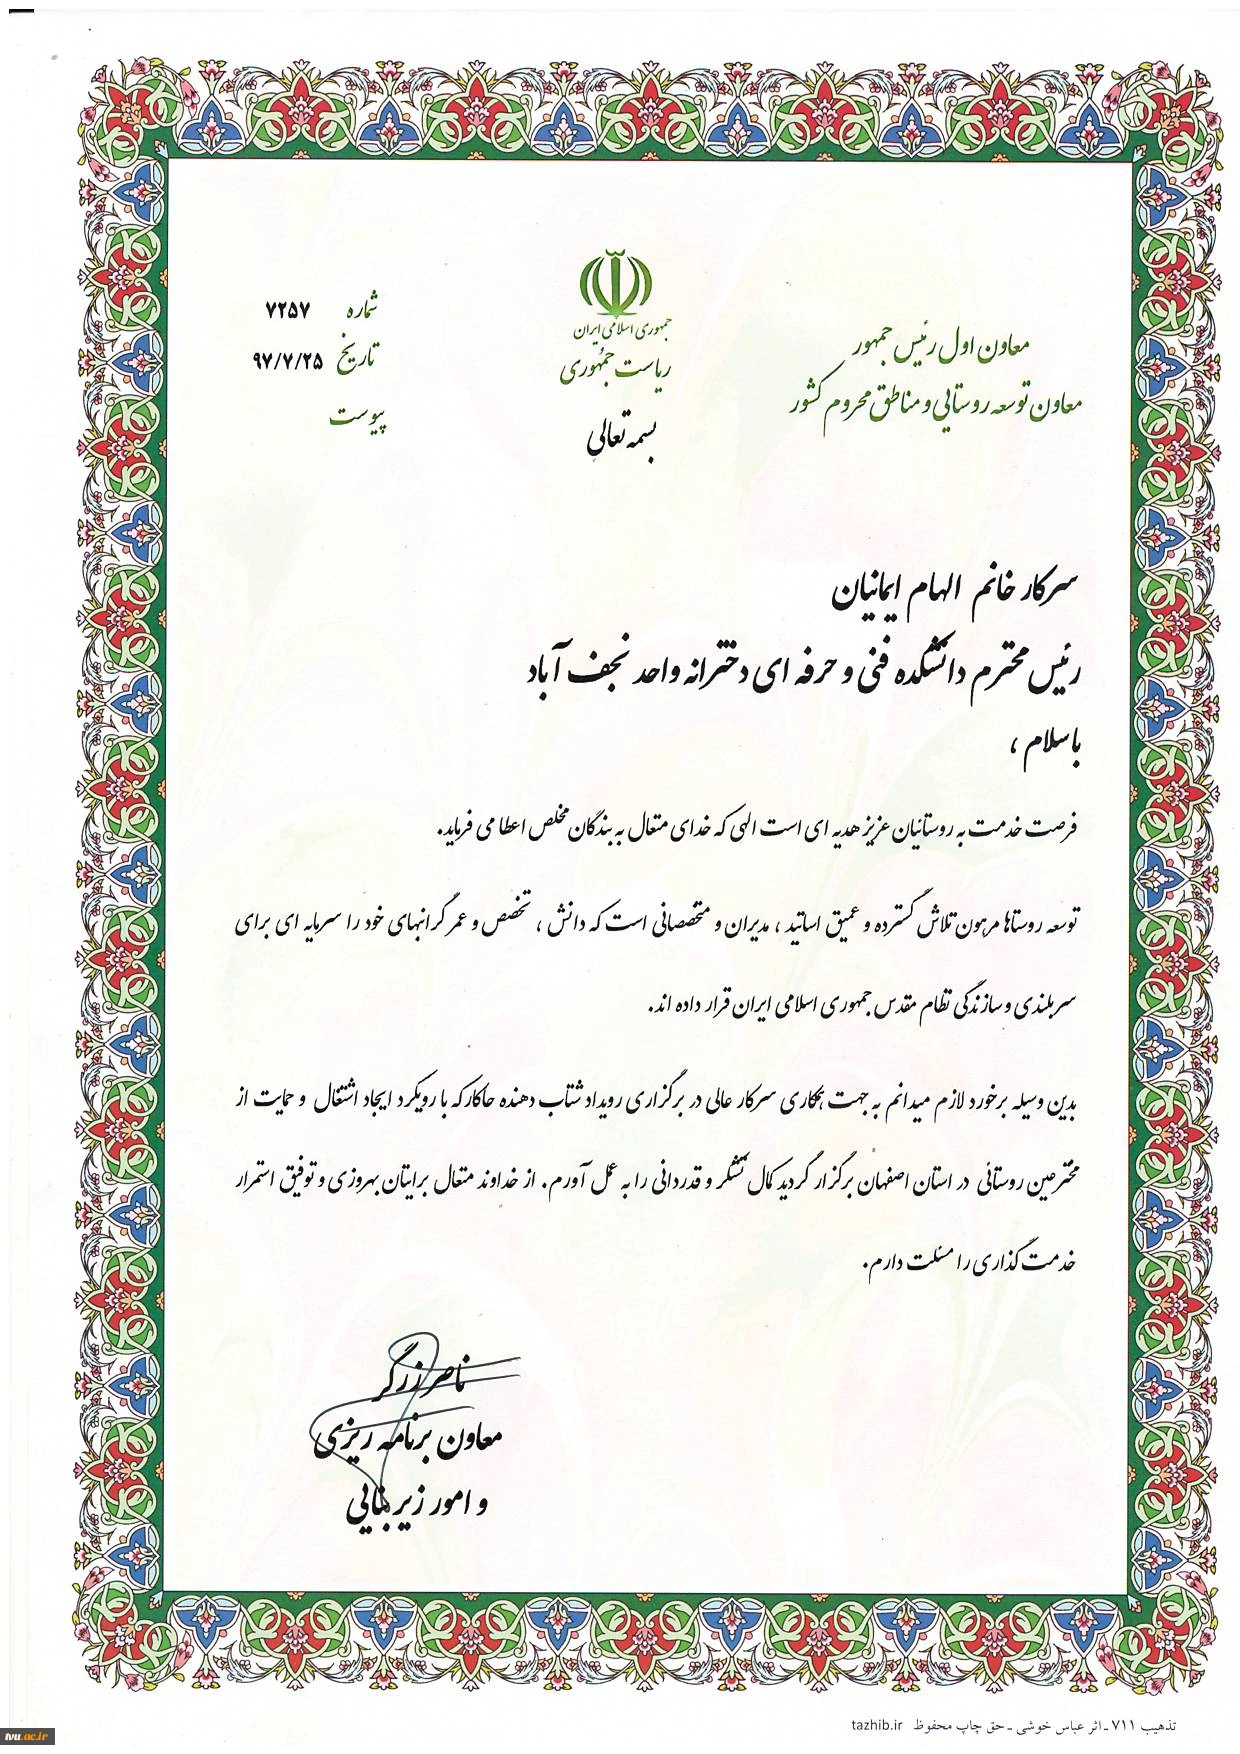 شماره ۷۲۵۷
تاریخ ۹۷/۷/۲۵
پیوست
جمهوری اسلامی ایران
ریاست جمهوری
بسمه تعالی
معاون اول رئیس جمهور
معاون توسعه روستایی و مناطق محروم کشور
سرکار خانم الهام ایمانیان
رئیس محترم دانشکده فنی و حرفه ای دخترانه واحد نجف آباد
باسلام ،
فرصت خدمت به روستائیان عزیز هدیه ای است الهی که خدای متعال به بندگان مخلص اعطا می فرماید.
توسعه روستاها مرهون تلاش گسترده و عمیق اساتید ، مدیران و متخصصانی است که دانش ، تخصص و عمر گرانبهای خود را سرمایه ای برای
سربلندی و سازندگی نظام مقدس جمهوری اسلامی ایران قرار داده اند.
بدین وسیله برخورد لازم میدانم به جهت همکاری سرکار عالی در برگزاری رویداد شتاب دهنده حاکار که با رویکرد ایجاد اشتغال و حمایت از
مخترعین روستائی در استان اصفهان برگزار گردید کمال تشکر و قدردانی را به عمل آورم. از خداوند متعال برایتان بهروزی و توفیق استمرار
خدمت گذاری را مسئلت دارم.
ناصر زرگر
معاون برنامه ریزی
و امور زیربنایی
تذهیب ۷۱۱ ـ اثر عباس خوشی ـ حق چاپ محفوظ tazhib.ir
tvu.ac.ir